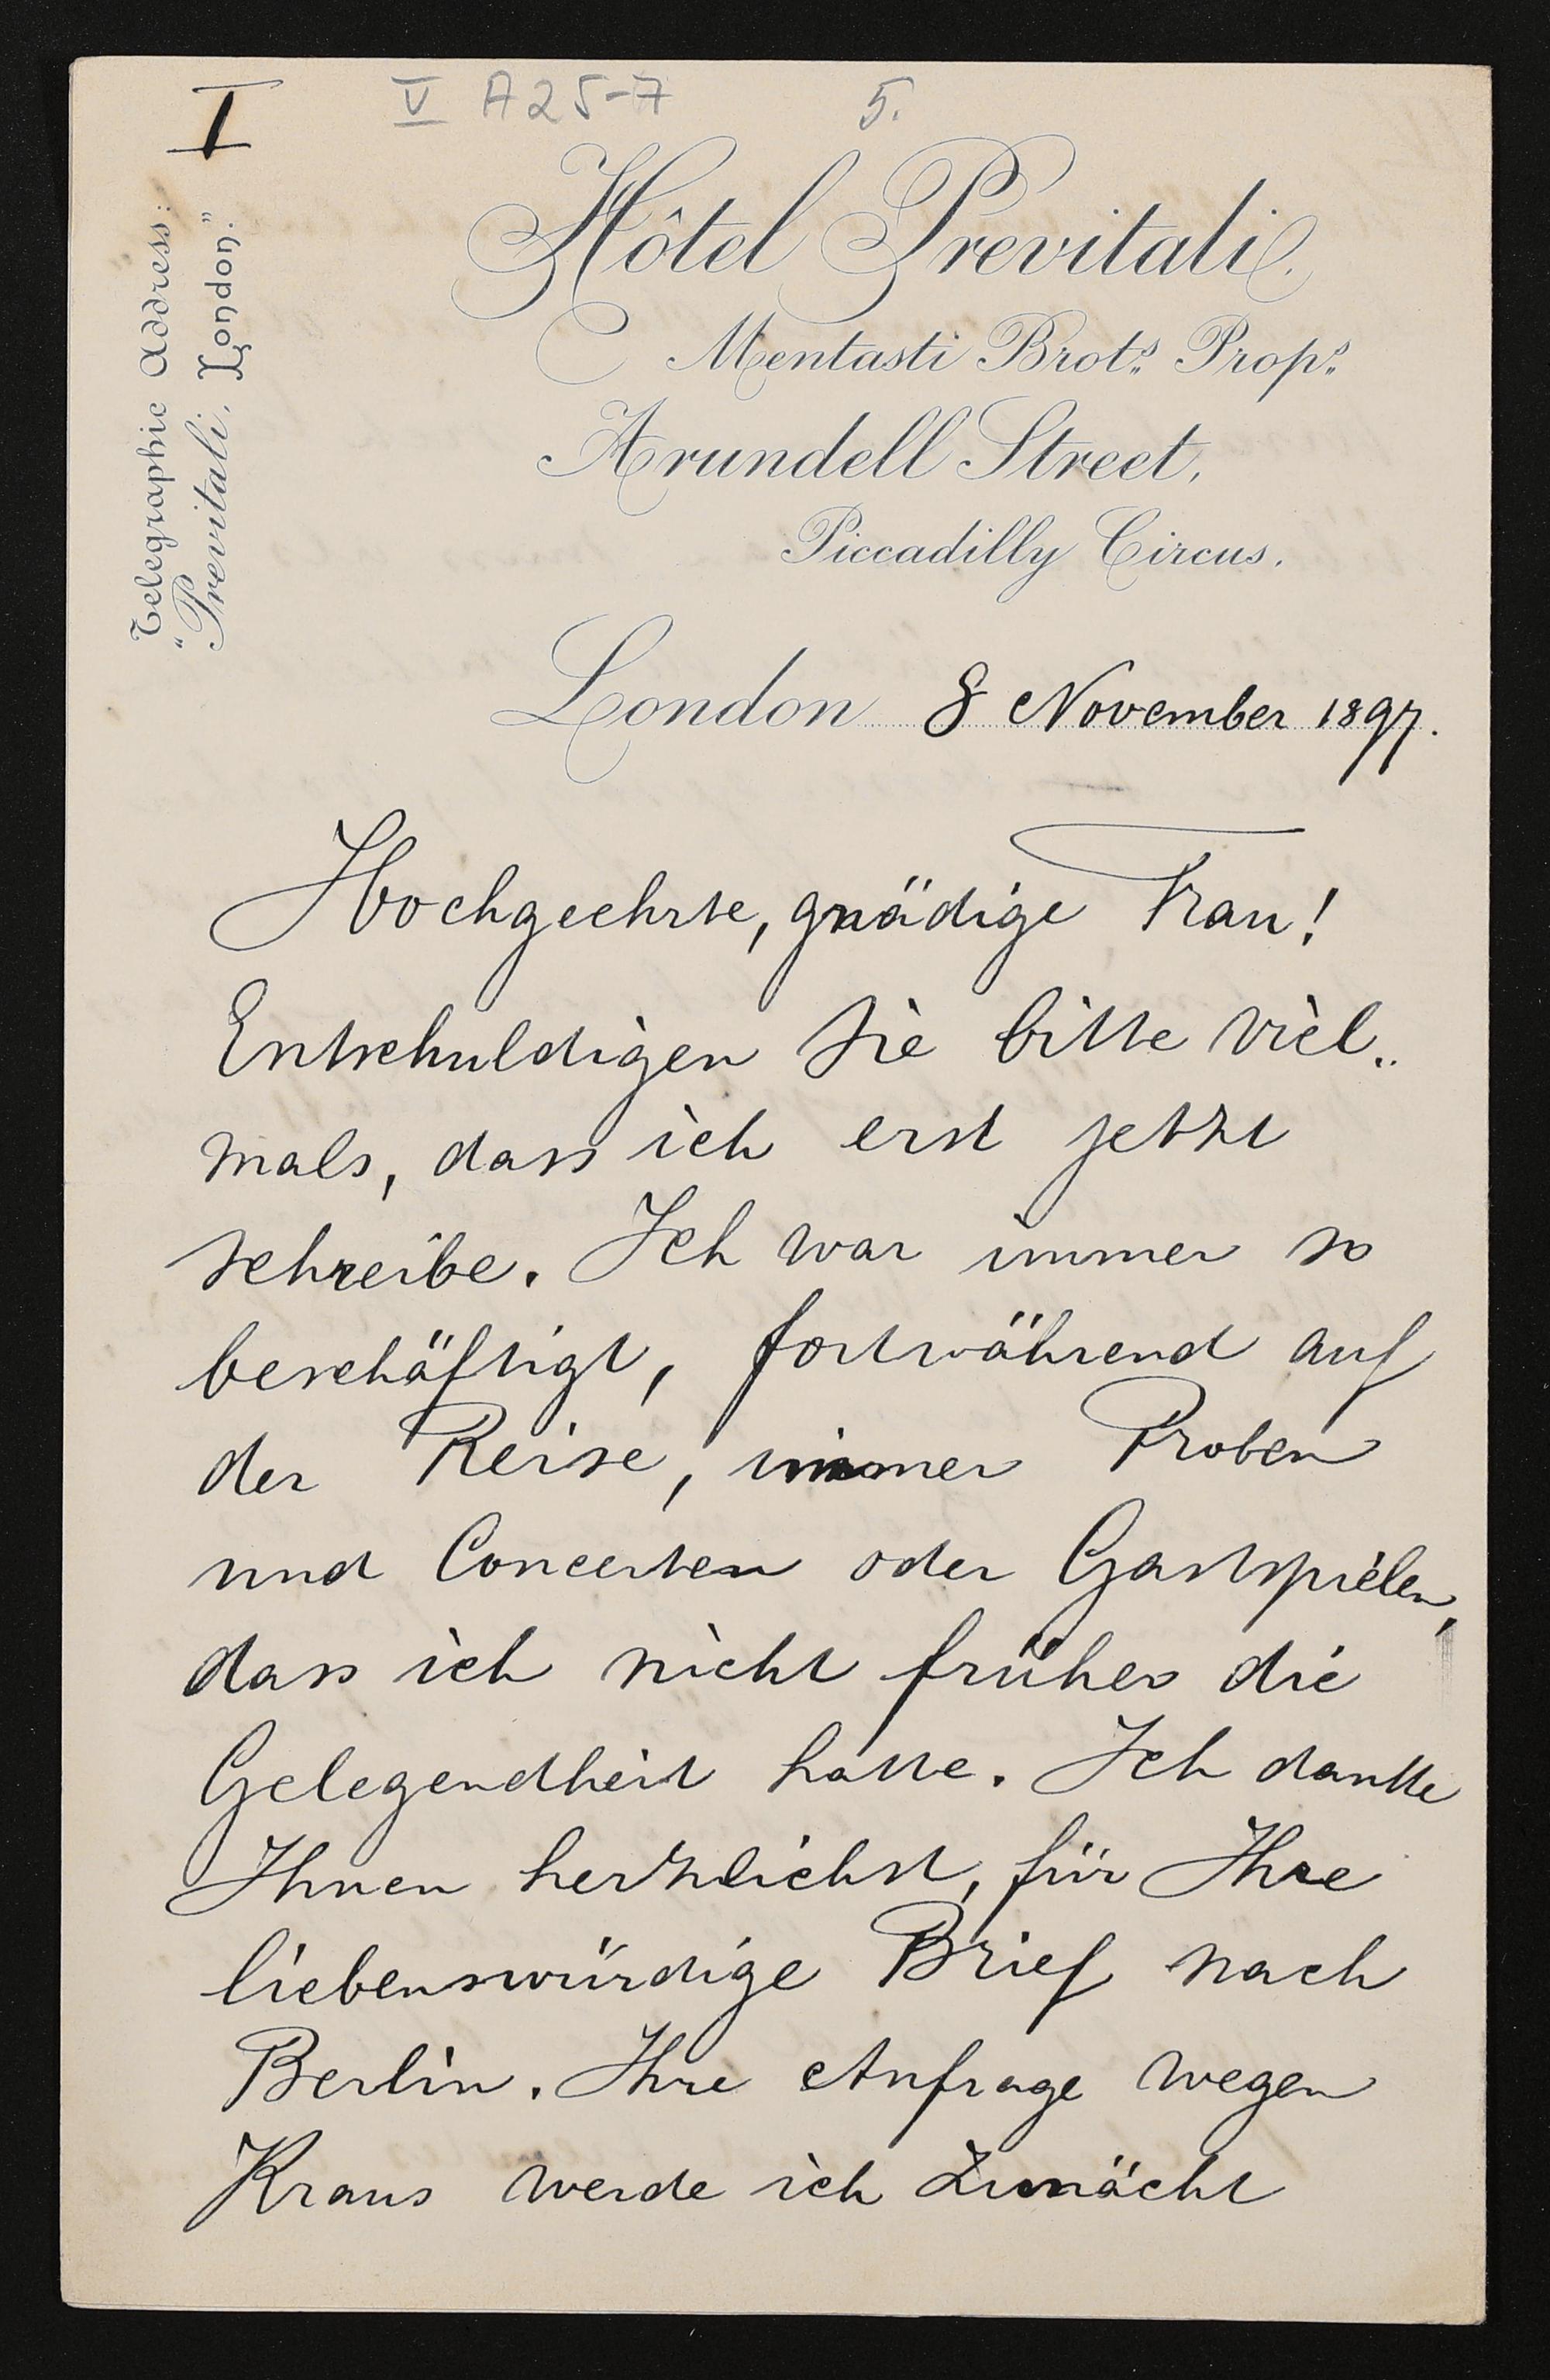 I
V A 25-7 5.
Telegraphic Address:
"Previtali, London."
Hôtel Previtali.
Mentasti Brots. Props.
Arundell Street,
Piccadilly Circus.
London 8 November 1897.
Hochgeehrte, gnädige Frau!
Entschuldigen Sie bitte viel=
mals, dass ich erst jetzt
schreibe. Ich war immer so
beschäftigt, fortwährend auf
der Reise, immer Proben
und Concerten oder Gastspielen,
dass ich nicht früher die
Gelegendheit hatte. Ich dankte
Ihnen herzlichst, für Ihre
liebenswürdige Brief nach
Berlin. Ihre Anfrage wegen
Kraus werde ich zunächt